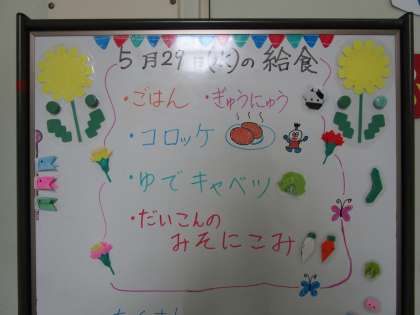 5月29日(火)の給食
・ごはん ・ぎゅうにゅう
・コロッケ
・ゆでキャベツ
・だいこんの
みそにこみ